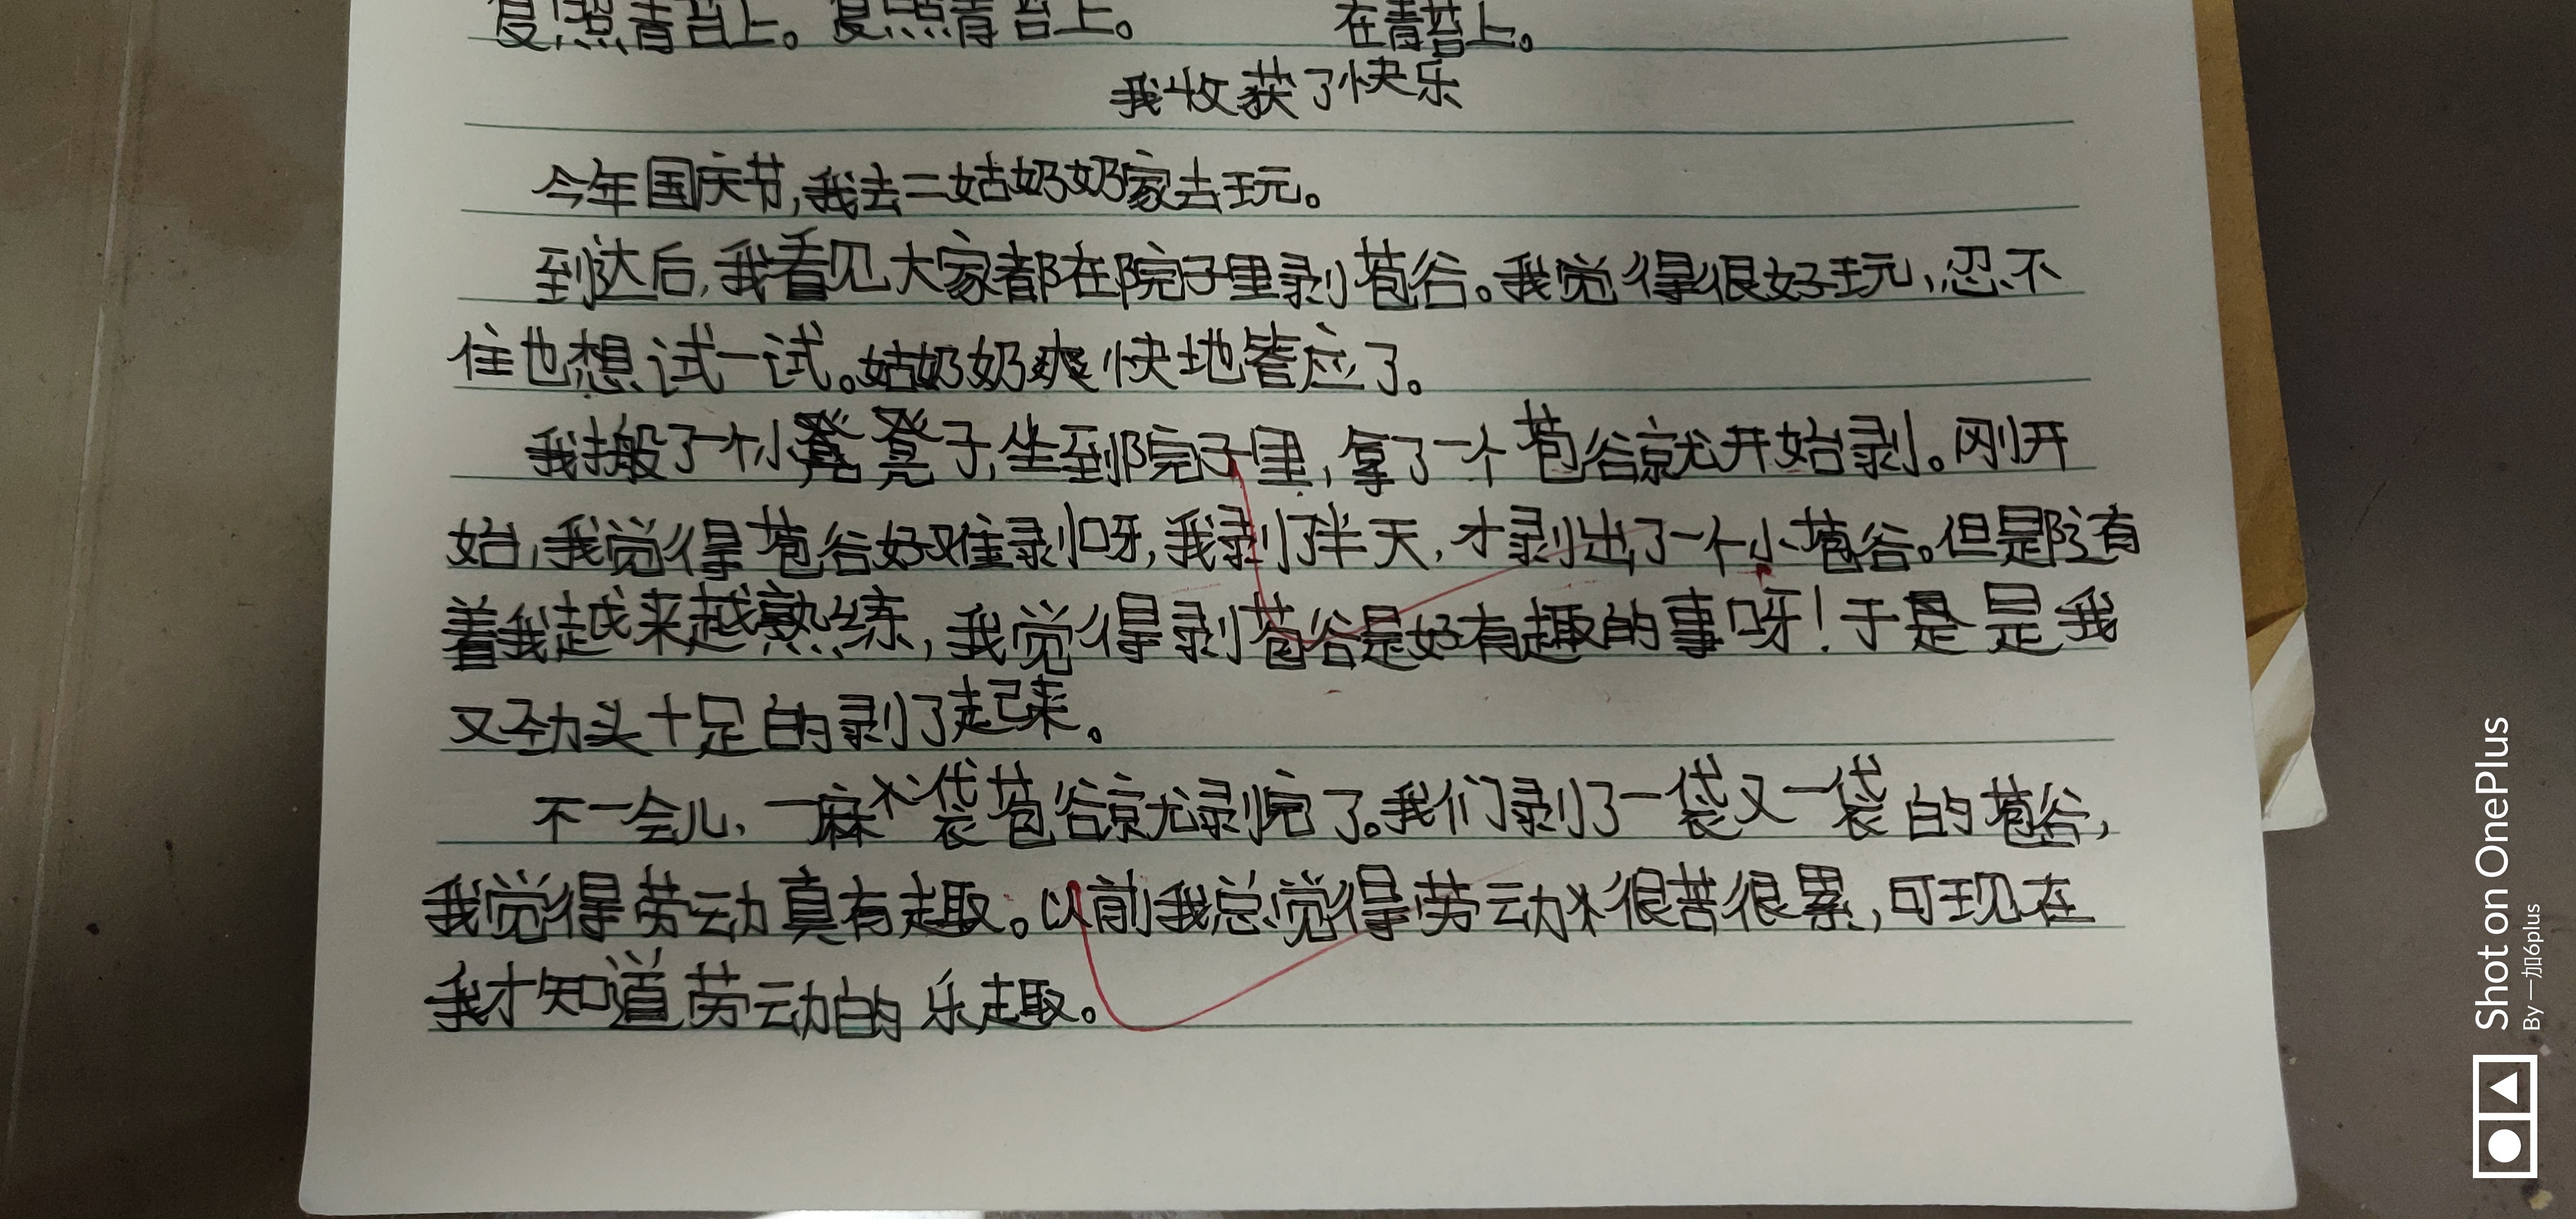 复照青苔上。复照青苔上。 在青苔上。
我收获了快乐
今年国庆节,我去二姑奶奶家去玩。
到达后,我看见大家都在院子里剥苞谷。我觉得很好玩,忍不
住也想试一试。姑奶奶爽快地答应了。
我搬了个小凳子,坐到院子里,拿了一个苞谷就开始剥。刚开
始,我觉得苞谷好难剥呀,我剥了半天,才剥出了一个小苞谷。但是随着
着我越来越熟练,我觉得剥苞谷是好有趣的事呀!于是我
又劲头十足的剥了起来。
不一会儿,一麻袋苞谷就剥完了。我们剥了一袋又一袋的苞谷,
我觉得劳动真有趣。以前我总觉得劳动很苦很累,可现在
我才知道劳动的乐趣。
Shot on OnePlus
By 一加6plus